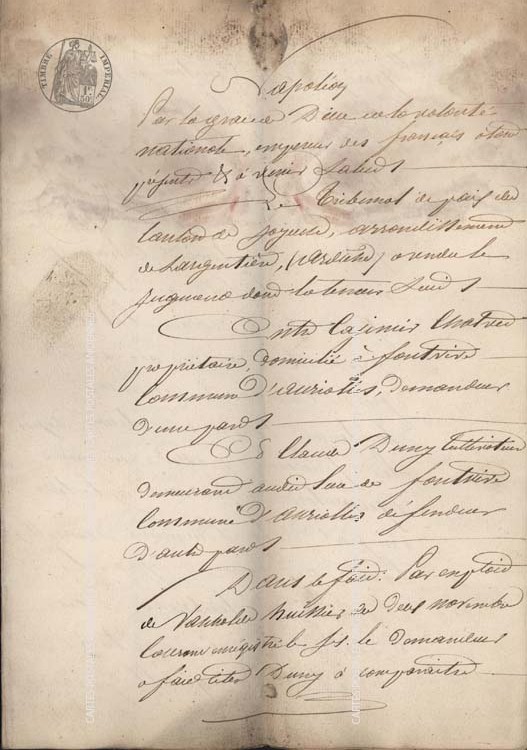 TIMBRE IMPERIAL
Napoléon
Par la grace de Dieu et la volonté
nationale, empereur des français à tous
présents & à venir Salut
Le Tribunal de paix du
Canton de Joyeuse, arrondissement
de Largentière, (ardèche) a rendu le
jugement dont la teneur suit
Entre Casimir
propriétaire, domicilié à fontvive
Commune d'auriolles, demandeur
d'une part
Et Claude Dumy Cultivateur
demeurant audit lieu de fontvive
Commune d'auriolles défendeur
D'autre part
Dans le fait: Par exploit
de huissier du deux novembre
Courant enregistré le demandeur
a fait citer Dumy à comparaitre
CARTES POSTALES ANCIENNES